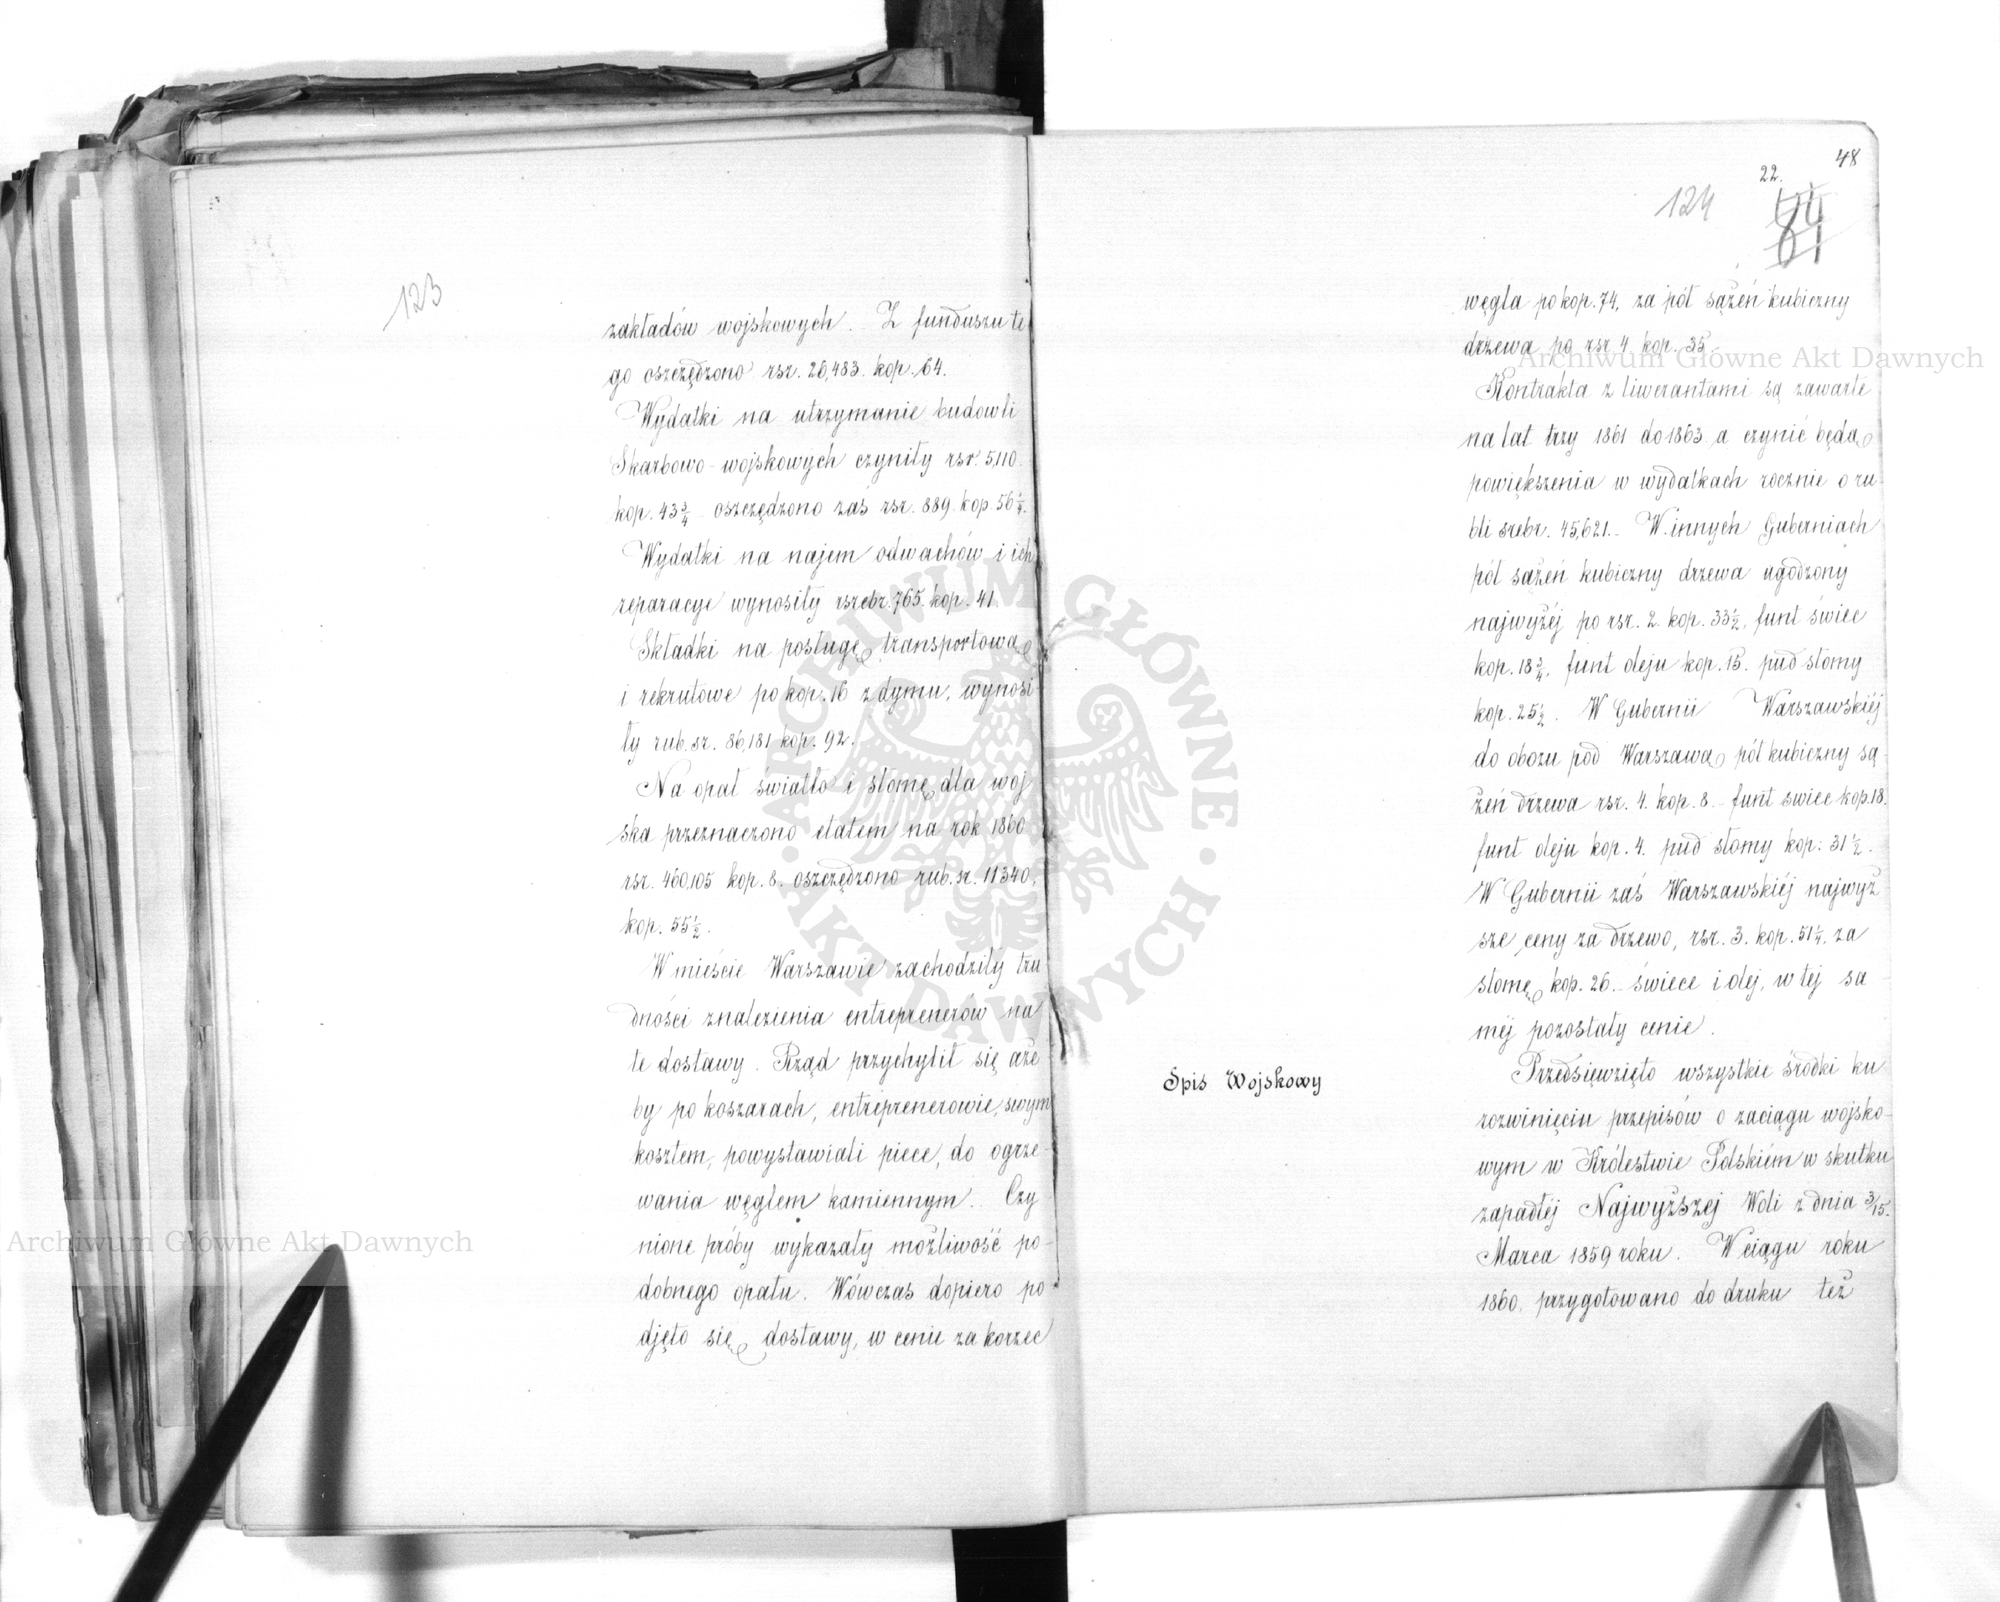 123
zakładów wojskowych. Z funduszu te
go oszczędzono rsr. 26,483. kop. 64.
Wydatki na utrzymanie budowli
Skarbowo-wojskowych czyniły rsr. 5,110.
kop. 43 3/4 oszczędzono zaś rsr. 889. kop. 56 1/4.
Wydatki na najem odwachów i ich
reparacye wynosiły rsrebr. 765. kop. 41.
Składki na posługę transportową
i rekrutowe po kop. 16 z dymu, wynosi-
ły rub. sr. 86,181 kop. 92.
Na opał światło i słomę dla woj
ska przeznaczono etatem na rok 1860
rsr. 460,105 kop. 8. oszczędzono rub. sr. 11340,
kop. 55 1/2.
W mieście Warszawie zachodziły tru
dności znalezienia entreprenerów na
te dostawy. Rząd przychylił się aże
by po koszarach, entreprenerowie, swym
kosztem, powystawiali piece, do ogrze-
wania węglem kamiennym. Czy
nione próby wykazały możliwość po-
dobnego opału. Wówczas dopiero po
djęto się dostawy, w cenie za korzec
48
22.
124
węgla po kop. 74, za pół sążeń kubiczny
drzewa po rsr 4 kop. 35.
Kontrakta z liwerantami są zawarte
na lat trzy 1861 do 1863 a czynić będą
powiększenia w wydatkach rocznie o ru-
bli srebr. 45,621.- W innych Guberniach
pół sążeń kubiczny drzewa ugodzony
najwyżéj po rsr. 2. kop. 33 1/2, funt świec
kop. 18 3/4, funt oleju kop. 15. pud słomy
kop. 25 1/2. W Gubernii Warszawskiéj
do obozu pod Warszawą pół kubiczny są-
żeń drzewa rsr. 4. kop. 8.- funt świec kop. 18.
funt oleju kop. 4. pud słomy kop. 31 1/2.
W Gubernii zaś Warszawskiéj najwyż-
sze ceny za drzewo, rsr. 3. kop. 51 1/4. za
słomę kop. 26.- świece i olej, w tej sa-
méj pozostały cenie.
Spis Wojskowy
Przedsięwzięto wszystkie środki ku
rozwinięciu przepisów o zaciągu wojsko-
wym w Królestwie Polskiém w skutku
zapadłéj Najwyższej Woli z dnia 3/15.
Marca 1859 roku. W ciągu roku
1860. przygotowano do druku też
Archiwum Główne Akt Dawnych
Archiwum Główne Akt Dawnych
ARCHIWUM GŁÓWNE AKT DAWNYCH